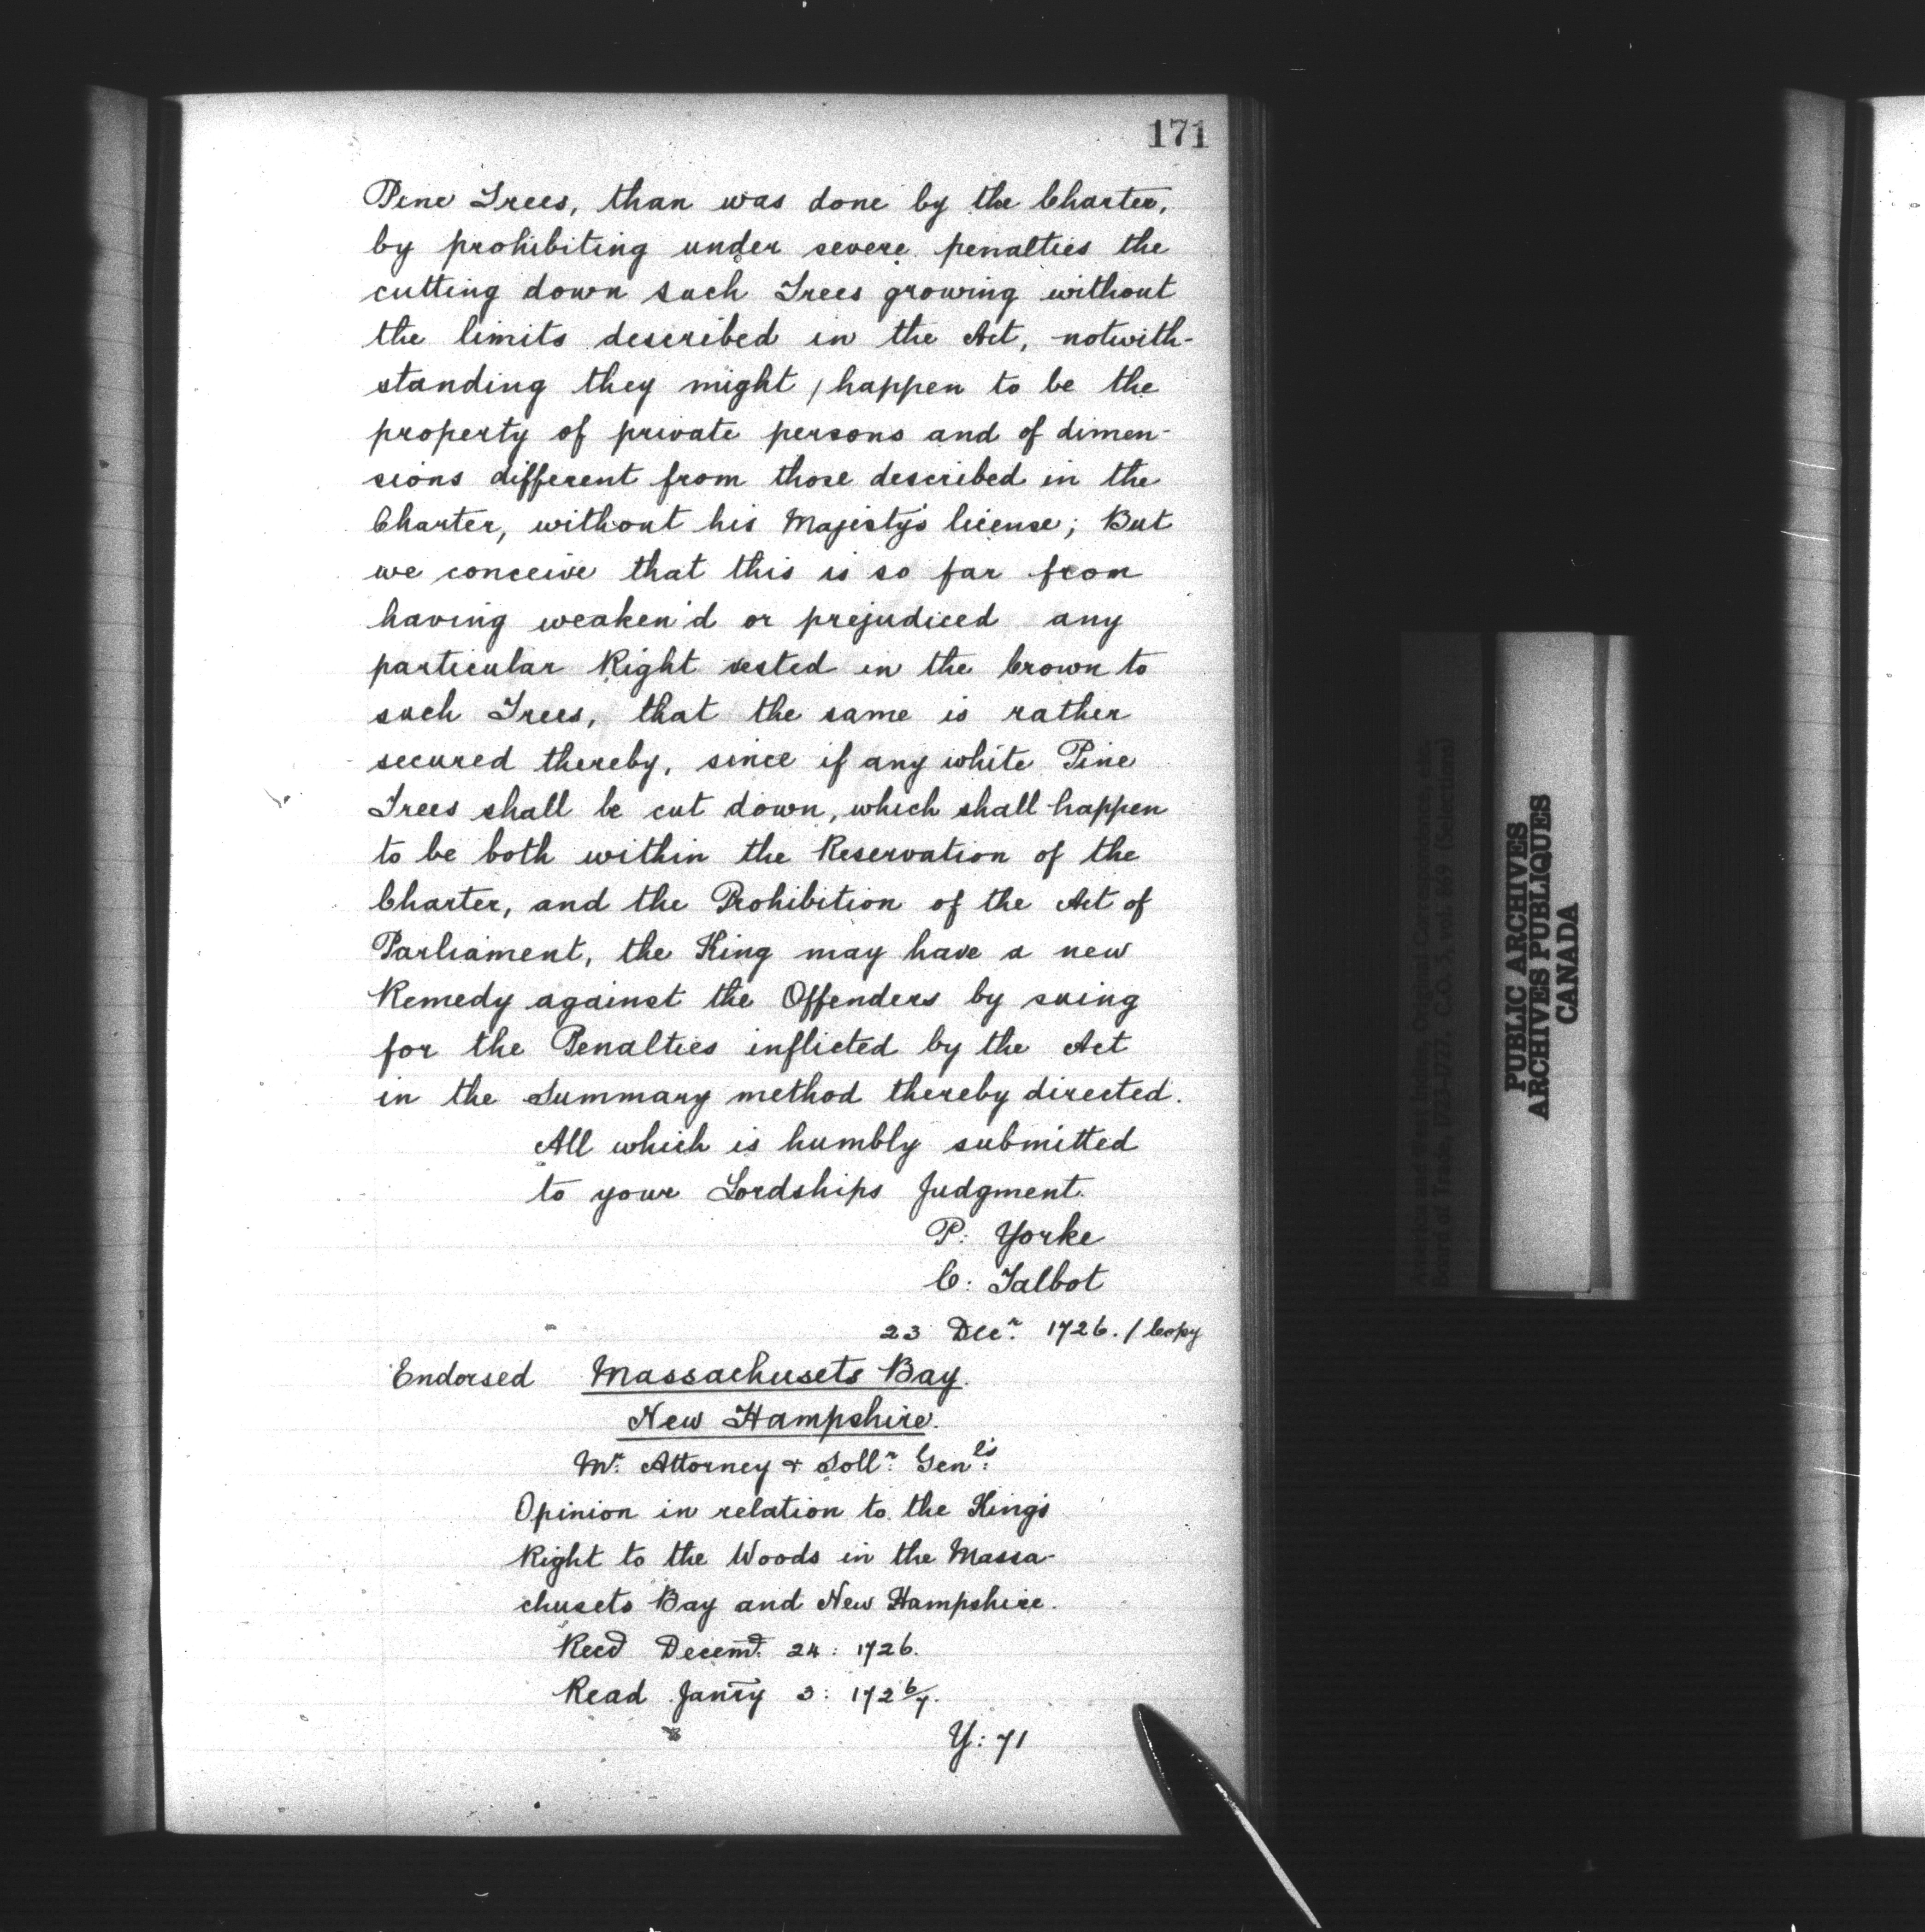 171
Pine Trees, than was done by the Charter,
by prohibiting under severe penalties the
cutting down such Trees growing without
the limits described in the Act, notwith-
standing they might / happen to be the
property of private persons and of dimen-
sions different from those described in the
Charter, without his Majesty's license; But
we conceive that this is so far from
having weaken'd or prejudiced any
particular Right vested in the Crown to
such Trees, that the same is rather
secured thereby, since if any white Pine
Trees shall be cut down, which shall happen
to be both within the Reservation of the
Charter, and the Prohibition of the Act of
Parliament, the King may have a new
Remedy against the Offenders by suing
for the Penalties inflicted by the Act
in the Summary method thereby directed.
All which is humbly submitted
to your Lordships Judgment.
P: Yorke
C: Talbot
23 Decr. 1726. / Copy
Endorsed Massachusets Bay.
New Hampshire.
Mr. Attorney & Sollr. Genl's.
Opinion in relation to the King's
Right to the Woods in the Massa-
chusets Bay and New Hampshire.
Recd Decemr. 24: 1726.
Read Janry 3: 1726/7.
Y: 71
America and West Indies, Original Correspondence, etc.
Board of Trade, 1723-1727. C.O. 5, vol. 869 (Selections)
PUBLIC ARCHIVES
ARCHIVES PUBLIQUES
CANADA